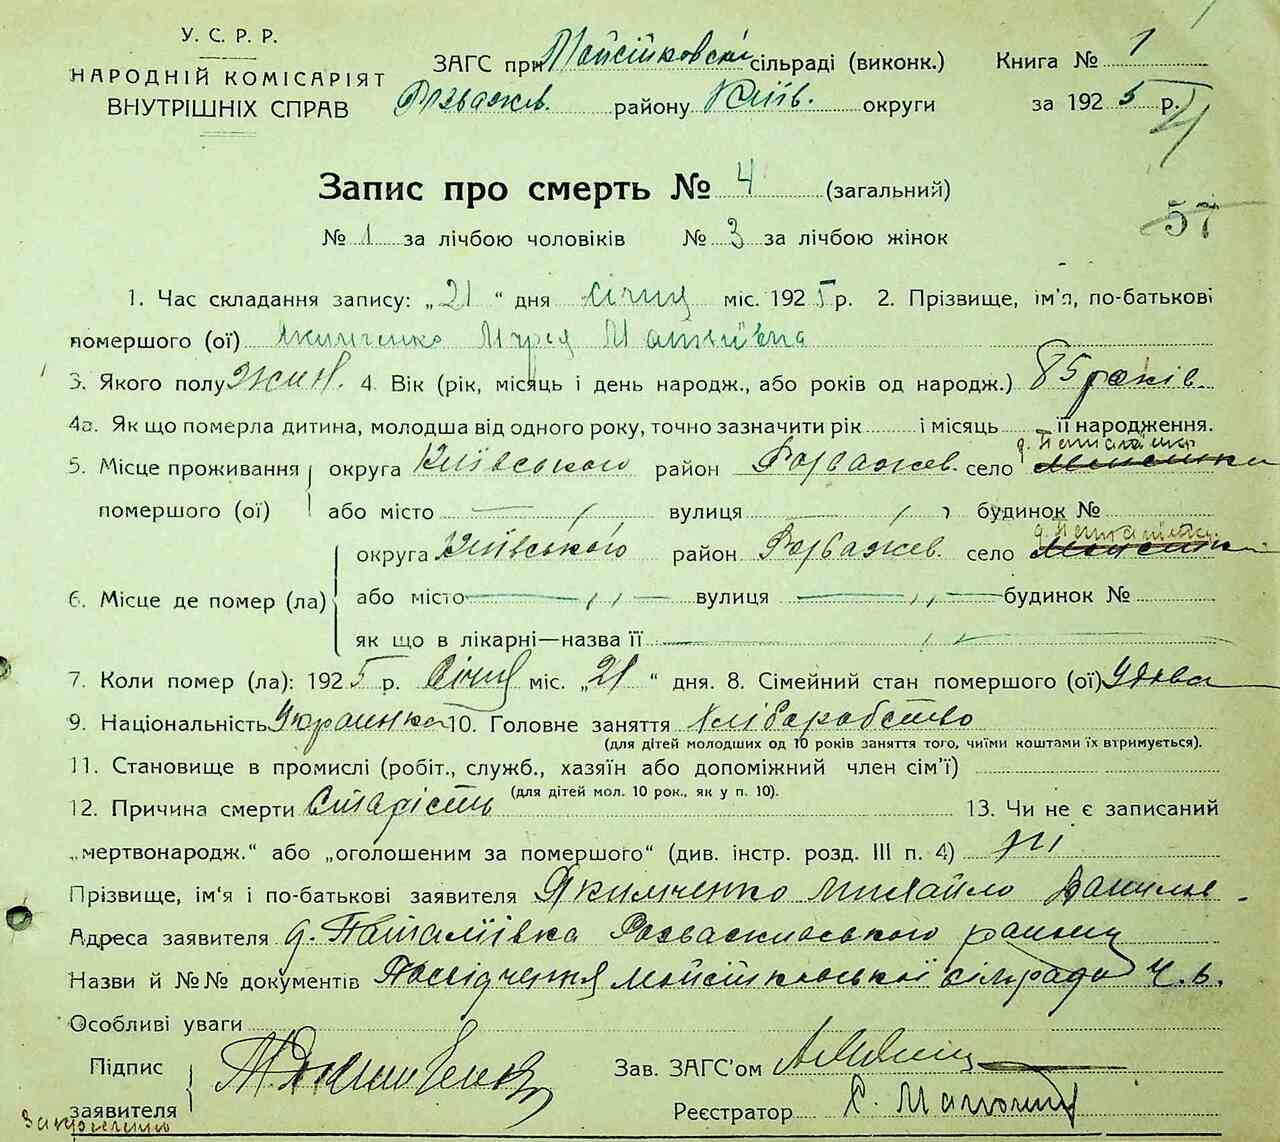 У. С. Р. Р.
НАРОДНІЙ КОМІСАРІЯТ
ВНУТРІШНІХ СПРАВ
ЗАГС при Мойсійковскій сільраді (виконк.) Книга № 1
Розважев. району Київ. округи за 1925 р.
Запис про смерть № 4 (загальний)
57
№ 1 за лічбою чоловіків № 3 за лічбою жінок
1. Час складання запису: „21“ дня січня міс. 1925 р. 2. Прізвище, ім'я, по-батькові
помершого (ої) Якимченко Марія Матвіївна
3. Якого полу жин. 4. Вік (рік, місяць і день народж., або років од народж.) 85 років.
4а. Як що померла дитина, молодша від одного року, точно зазначити рік і місяць її народження.
5. Місце проживання округа Київського район Розважев. село
помершого (ої) або місто вулиця будинок №
округа Київського район Розважев. село
6. Місце де помер (ла) або місто вулиця будинок №
як що в лікарні—назва її
7. Коли помер (ла): 1925 р. Січня міс. „21“ дня. 8. Сімейний стан помершого (ої) Удова
9. Національність Украинка 10. Головне заняття Хліборобство
(для дітей молодших од 10 років заняття того, чиїми коштами їх втримується).
11. Становище в промислі (робіт., служб., хазяїн або допоміжний член сім'ї)
(для дітей мол. 10 рок., як у п. 10).
12. Причина смерти Старість 13. Чи не є записаний
„мертвонародж.“ або „оголошеним за помершого“ (див. інстр. розд. III п. 4) ні
Прізвище, ім'я і по-батькові заявителя Якимченко Михайло
Адреса заявителя д. Наталіївка Розваживського району
Назви й №№ документів Посвідчення Мойсійковської сільради ч. 6.
Особливі уваги
Підпис
заявителя
Зав. ЗАГС'ом
Реєстратор